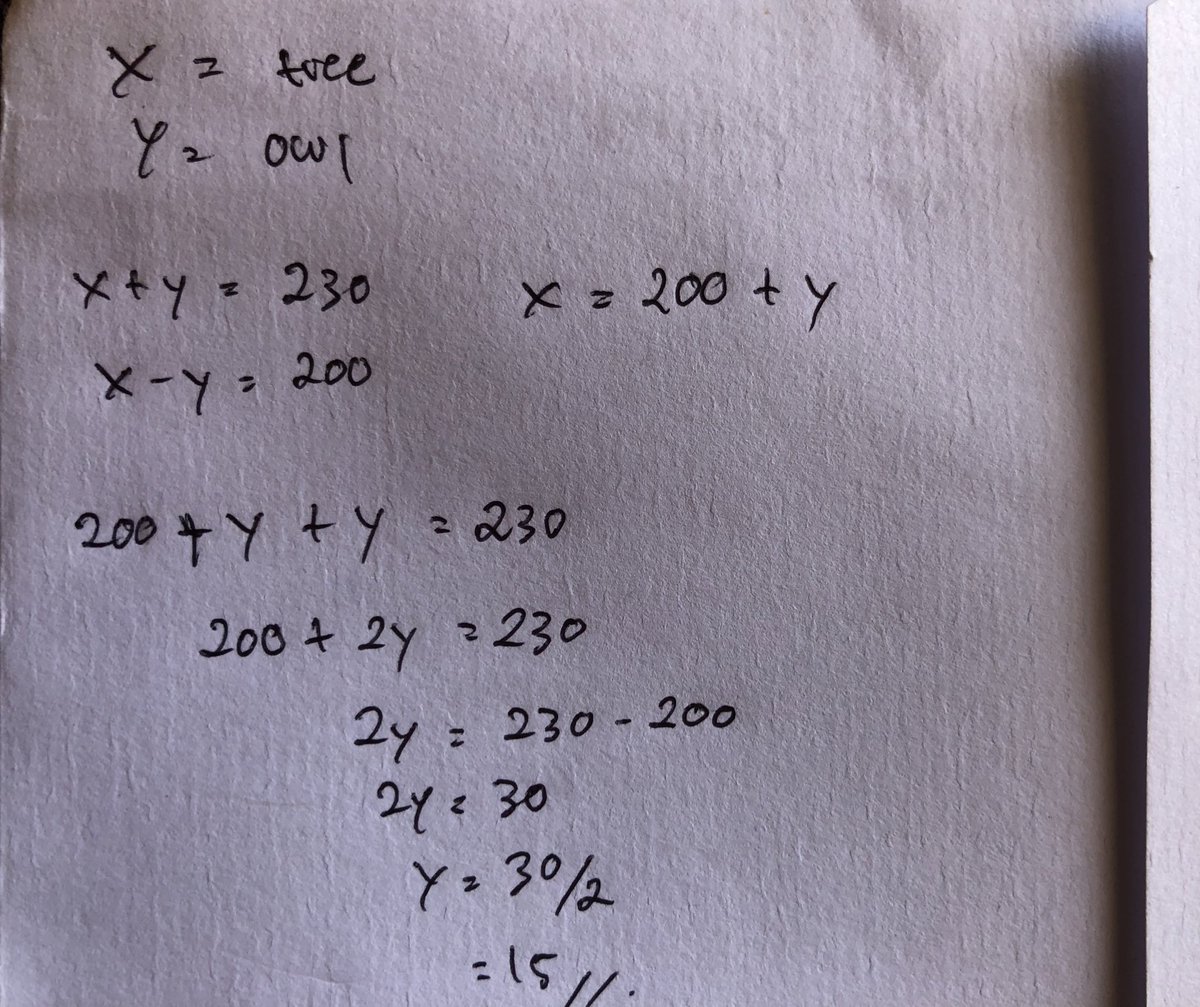 X = tree
Y = owl
x + y = 230
x = 200 + y
x - y = 200
200 + y + y = 230
200 + 2y = 230
2y = 230 - 200
2y = 30
y = 30/2
= 15 //.